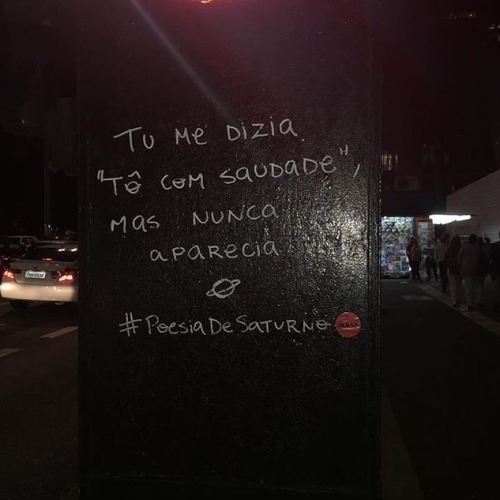 TU ME DIZIA
"TÔ COM SAUDADE",
MAS NUNCA
APARECIA
#POESIADESATURNO